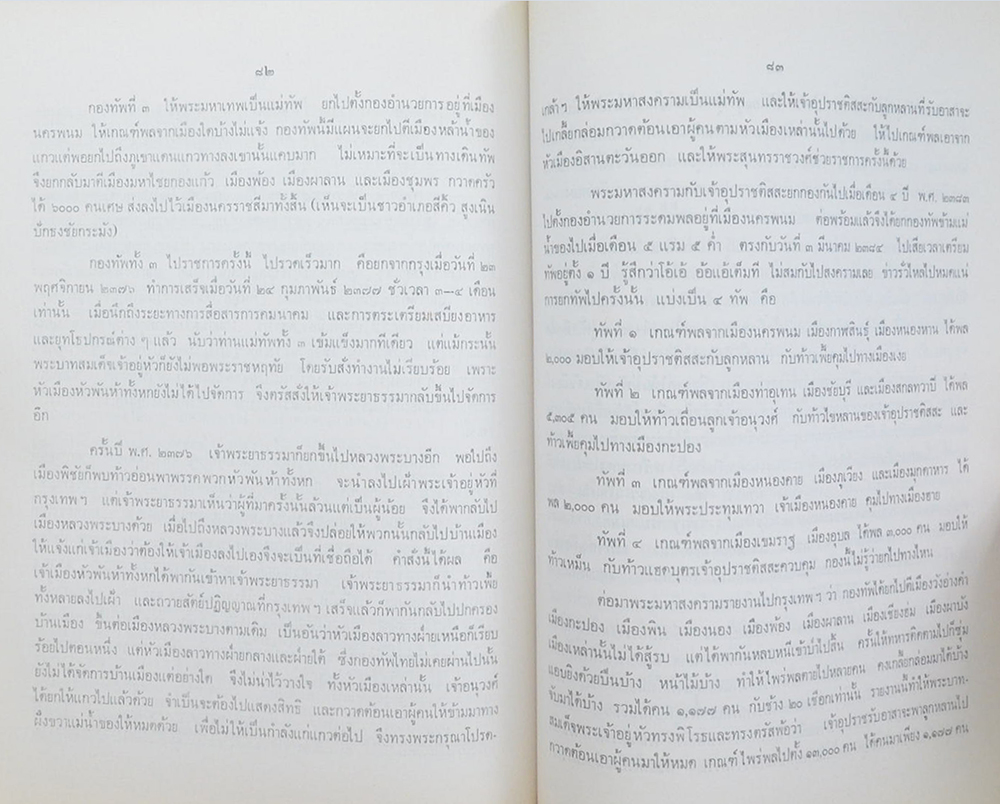 ๘๒
กองทัพที่ ๓ ให้พระมหาเทพเป็นแม่ทัพ ยกไปตั้งกองอำนวยการอยู่ที่เมือง
นครพนม ให้เกณฑ์พลจากเมืองใดบ้างไม่แจ้ง กองทัพนี้มีแผนจะยกไปตีเมืองหล้าน้ำของ
แกวแต่พอยกไปถึงภูเขาแดนแกวทางลงเขานั้นแคบมาก ไม่เหมาะที่จะเป็นทางเดินทัพ
จึงยกกลับมาตีเมืองมหาไชยกองแก้ว เมืองพ้อง เมืองผาลาน และเมืองชุมพร กวาดครัว
ได้ ๖๐๐๐ คนเศษ ส่งลงไปไว้เมืองนครราชสีมาทั้งสิ้น (เห็นจะเป็นชาวอำเภอสีคิ้ว สูงเนิน
ปักธงชัยกระมัง)
กองทัพทั้ง ๓ ไปราชการครั้งนี้ ไปรวดเร็วมาก คือยกจากกรุงเมื่อวันที่ ๒๓
พฤศจิกายน ๒๓๗๖ ทำการเสร็จเมื่อวันที่ ๒๔ กุมภาพันธ์ ๒๓๗๗ ชั่วเวลา ๓–๔ เดือน
เท่านั้น เมื่อนึกถึงระยะทางการสื่อสารการคมนาคม และการตระเตรียมเสบียงอาหาร
และยุทโธปกรณ์ต่าง ๆ แล้ว นับว่าท่านแม่ทัพทั้ง ๓ เข้มแข็งมากทีเดียว แต่แม้กระนั้น
พระบาทสมเด็จเจ้าอยู่หัวก็ยังไม่พอพระราชหฤทัย โดยรับสั่งทำงานไม่เรียบร้อย เพราะ
หัวเมืองหัวพันห้าทั้งหกยังไม่ได้ไปจัดการ จึงตรัสสั่งให้เจ้าพระยาธรรมากลับขึ้นไปจัดการ
อีก
ครั้นปี พ.ศ. ๒๓๗๖ เจ้าพระยาธรรมาก็ยกขึ้นไปหลวงพระบางอีก พอไปถึง
เมืองพิชัยก็พบท้าวอ่อนพาพรรคพวกหัวพันห้าทั้งหก จะนำลงไปเฝ้าพระเจ้าอยู่หัวที่
กรุงเทพฯ แต่เจ้าพระยาธรรมาเห็นว่าผู้ที่มาครั้งนั้นล้วนแต่เป็นผู้น้อย จึงได้พากลับไป
เมืองหลวงพระบางด้วย เมื่อไปถึงหลวงพระบางแล้วจึงปล่อยให้พวกนั้นกลับไปบ้านเมือง
ให้แจ้งแก่เจ้าเมืองว่าต้องให้เจ้าเมืองลงไปเองจึงจะเป็นที่เชื่อถือได้ คำสั่งนี้ได้ผล คือ
เจ้าเมืองหัวพันห้าทั้งหกได้พากันเข้าหาเจ้าพระยาธรรมา เจ้าพระยาธรรมาก็นำท้าวเพี้ย
ทั้งหลายลงไปเฝ้า และถวายสัตย์ปฏิญาณที่กรุงเทพฯ เสร็จแล้วก็พากันกลับไปปกครอง
บ้านเมือง ขึ้นต่อเมืองหลวงพระบางตามเดิม เป็นอันว่าหัวเมืองลาวทางฝ่ายเหนือก็เรียบ
ร้อยไปตอนหนึ่ง แต่หัวเมืองลาวทางฝ่ายกลางและฝ่ายใต้ ซึ่งกองทัพไทยไม่เคยผ่านไปนั้น
ยังไม่ได้จัดการบ้านเมืองแต่อย่างใด จึงไม่น่าไว้วางใจ ทั้งหัวเมืองเหล่านั้น เจ้าอนุวงศ์
ได้ยกให้แกวไปแล้วด้วย จำเป็นจะต้องไปแสดงสิทธิ และกวาดต้อนเอาผู้คนให้ข้ามมาทาง
ฝั่งขวาแม่น้ำของให้หมดด้วย เพื่อไม่ให้เป็นกำลังแก่แกวต่อไป จึงทรงพระกรุณาโปรด-
๘๓
เกล้าฯ ให้พระมหาสงครามเป็นแม่ทัพ และให้เจ้าอุปราชติสสะกับลูกหลานที่รับอาสาจะ
ไปเกลี้ยกล่อมกวาดต้อนเอาผู้คนตามหัวเมืองเหล่านั้นไปด้วย ให้ไปเกณฑ์พลเอาจาก
หัวเมืองอิสานตะวันออก และให้พระสุนทรราชวงศ์ช่วยราชการครั้งนี้ด้วย
พระมหาสงครามกับเจ้าอุปราชติสสะยกกองกันไปเมื่อเดือน ๔ ปี พ.ศ. ๒๓๘๓
ไปตั้งกองอำนวยการระดมพลอยู่ที่เมืองนครพนม ต่อพร้อมแล้วจึงได้ยกกองทัพข้ามแม่
น้ำของไปเมื่อเดือน ๕ แรม ๕ ค่ำ ตรงกับวันที่ ๓ มีนาคม ๒๓๘๔ ไปเสียเวลาเตรียม
ทัพอยู่ตั้ง ๑ ปี รู้สึกว่าโอ้เอ้ อ้อแอ้เต็มที ไม่สมกับไปสงครามเลย ข่าวรั่วไหลไปหมดแน่
การยกทัพไปครั้งนั้น แบ่งเป็น ๔ ทัพ คือ
ทัพที่ ๑ เกณฑ์พลจากเมืองนครพนม เมืองกาฬสินธุ์ เมืองหนองหาน ได้พล
๒,๐๐๐ มอบให้เจ้าอุปราชติสสะกับลูกหลาน กับท้าวเพี้ยคุมไปทางเมืองเงย
ทัพที่ ๒ เกณฑ์พลจากเมืองท่าอุเทน เมืองชัยบุรี และเมืองสกลทวาปี ได้พล
๕,๓๐๕ คน มอบให้ท้าวเถื่อนลูกเจ้าอนุวงศ์ กับท้าวไขหลานของเจ้าอุปราชติสสะ และ
ท้าวเพี้ยคุมไปทางเมืองกะปอง
ทัพที่ ๓ เกณฑ์พลจากเมืองหนองคาย เมืองภูเวียง และเมืองมุกดาหาร ได้
พล ๒,๐๐๐ คน มอบให้พระประทุมเทวา เจ้าเมืองหนองคาย คุมไปทางเมืองฮาย
ทัพที่ ๔ เกณฑ์พลจากเมืองเขมราฐ เมืองอุบล ได้พล ๓,๐๐๐ คน มอบให้
ท้าวเหม็น กับท้าวแฮดบุตรเจ้าอุปราชติสสะควบคุม กองนี้ไม่รู้ว่ายกไปทางไหน
ต่อมาพระมหาสงครามรายงานไปกรุงเทพฯ ว่า กองทัพได้ยกไปตีเมืองวังอ่างคำ
เมืองกะปอง เมืองพิน เมืองนอง เมืองพ้อง เมืองผาลาน เมืองเชียงฮ่ม เมืองผาบัง
เมืองเหล่านั้นไม่ได้สู้รบ แต่ได้พากันหลบหนีเข้าป่าไปสิ้น ครั้นให้ทหารติดตามไปก็ซุ่ม
แอบยิงด้วยปืนบ้าง หน้าไม้บ้าง ทำให้ไพร่พลตายไปหลายคน คงเกลี้ยกล่อมมาได้บ้าง
จับมาได้บ้าง รวมได้คน ๑,๑๗๗ คน กับช้าง ๒๐ เชือกเท่านั้น รายงานนี้ทำให้พระบาท-
สมเด็จพระเจ้าอยู่หัวทรงพิโรธและทรงตรัสพ้อว่า เจ้าอุปราชรับอาสาจะพาลูกหลานไป
กวาดต้อนเอาผู้คนมาให้หมด เกณฑ์ไพร่พลไปตั้ง ๑๓,๐๐๐ คน ได้คนมาเพียง ๑,๑๗๗ คน